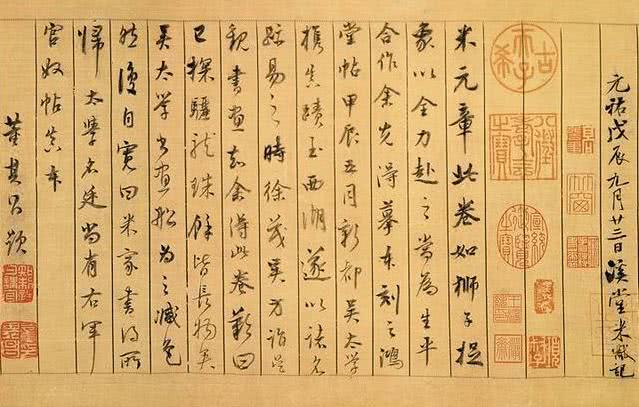 元祐戊辰九月廿三日溪堂米黻記
古希天子
八徵耄念之寶
宣統御覽之寶
米元章此卷如獅子捉
象以全力赴之當為生平
合作余先得摹本刻之鴻
堂帖甲辰五月新都吳太學
攜真蹟至西湖遂以諸名
跡易之時徐茂吳方詣吳
觀書畫知余得此卷歎曰
已探驪龍珠餘皆長物矣
吳太學書畫船為之減色
然復自寬曰米家書得所
歸太學名廷尚有右軍
官奴帖真本
董其昌題